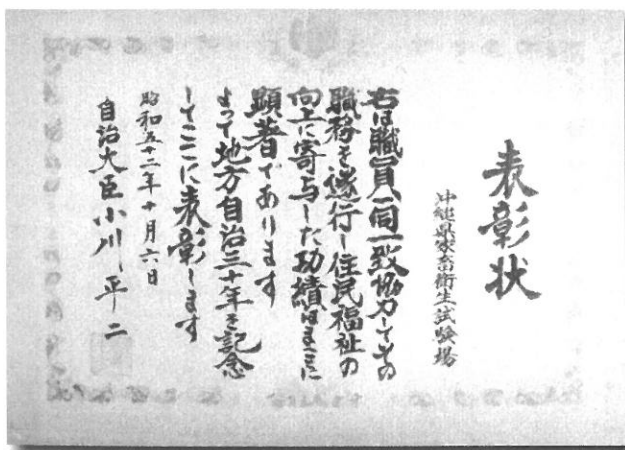 表彰状
沖縄県家畜衛生試験場
右は職員一同一致協力してその
職務を遂行し住民福祉の
向上に寄与した功績はまことに
顕著であります
よって地方自治三十年を記念
してここに表彰します
昭和五十二年十月六日
自治大臣小川平二